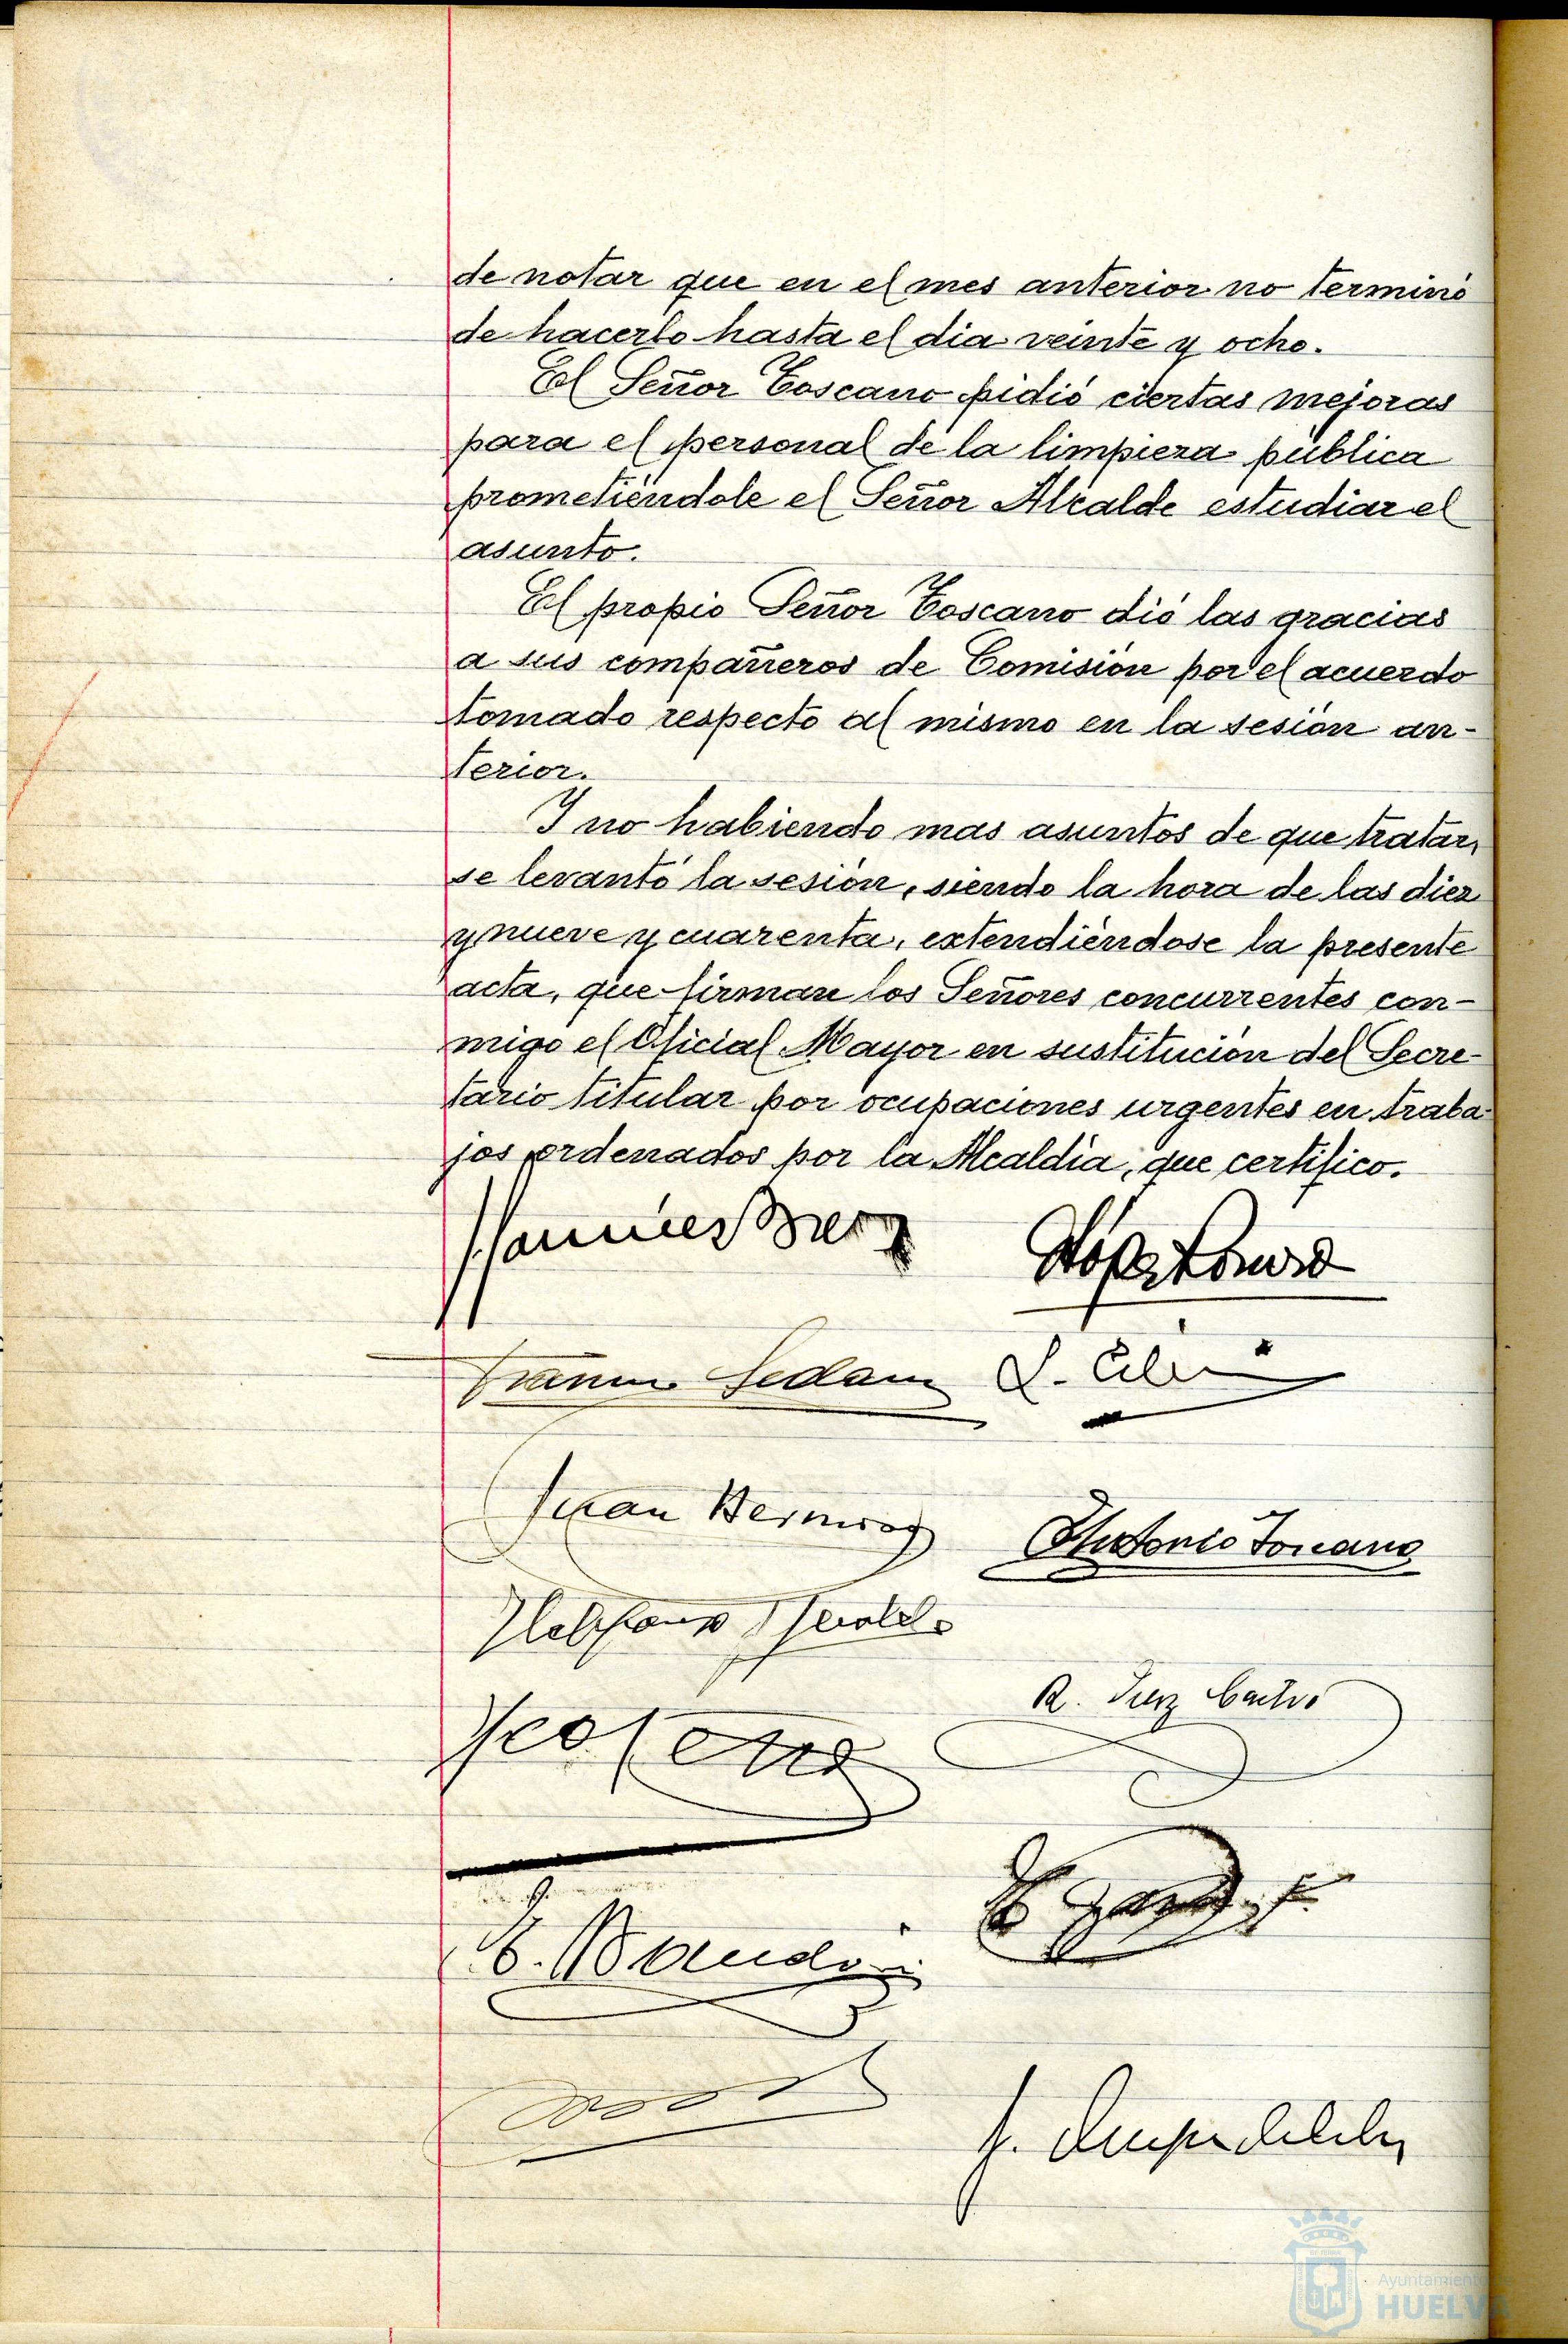 de notar que en el mes anterior no terminó
de hacerlo hasta el dia veinte y ocho.
El Señor Toscano pidió ciertas mejoras
para el personal de la limpieza pública
prometiéndole el Señor Alcalde estudiar el
asunto.
El propio Señor Toscano dió las gracias
a sus compañeros de Comisión por el acuerdo
tomado respecto al mismo en la sesión an-
terior.
Y no habiendo mas asuntos de que tratar,
se levantó la sesión, siendo la hora de las diez
y nueve y cuarenta, extendiéndose la presente
acta, que firman los Señores concurrentes con-
migo el Oficial Mayor en sustitución del Secre-
tario titular por ocupaciones urgentes en traba-
jos ordenados por la Alcaldía, que certifico.
Juan
Antonio Toscano
R.
Ayuntamiento de
HUELVA